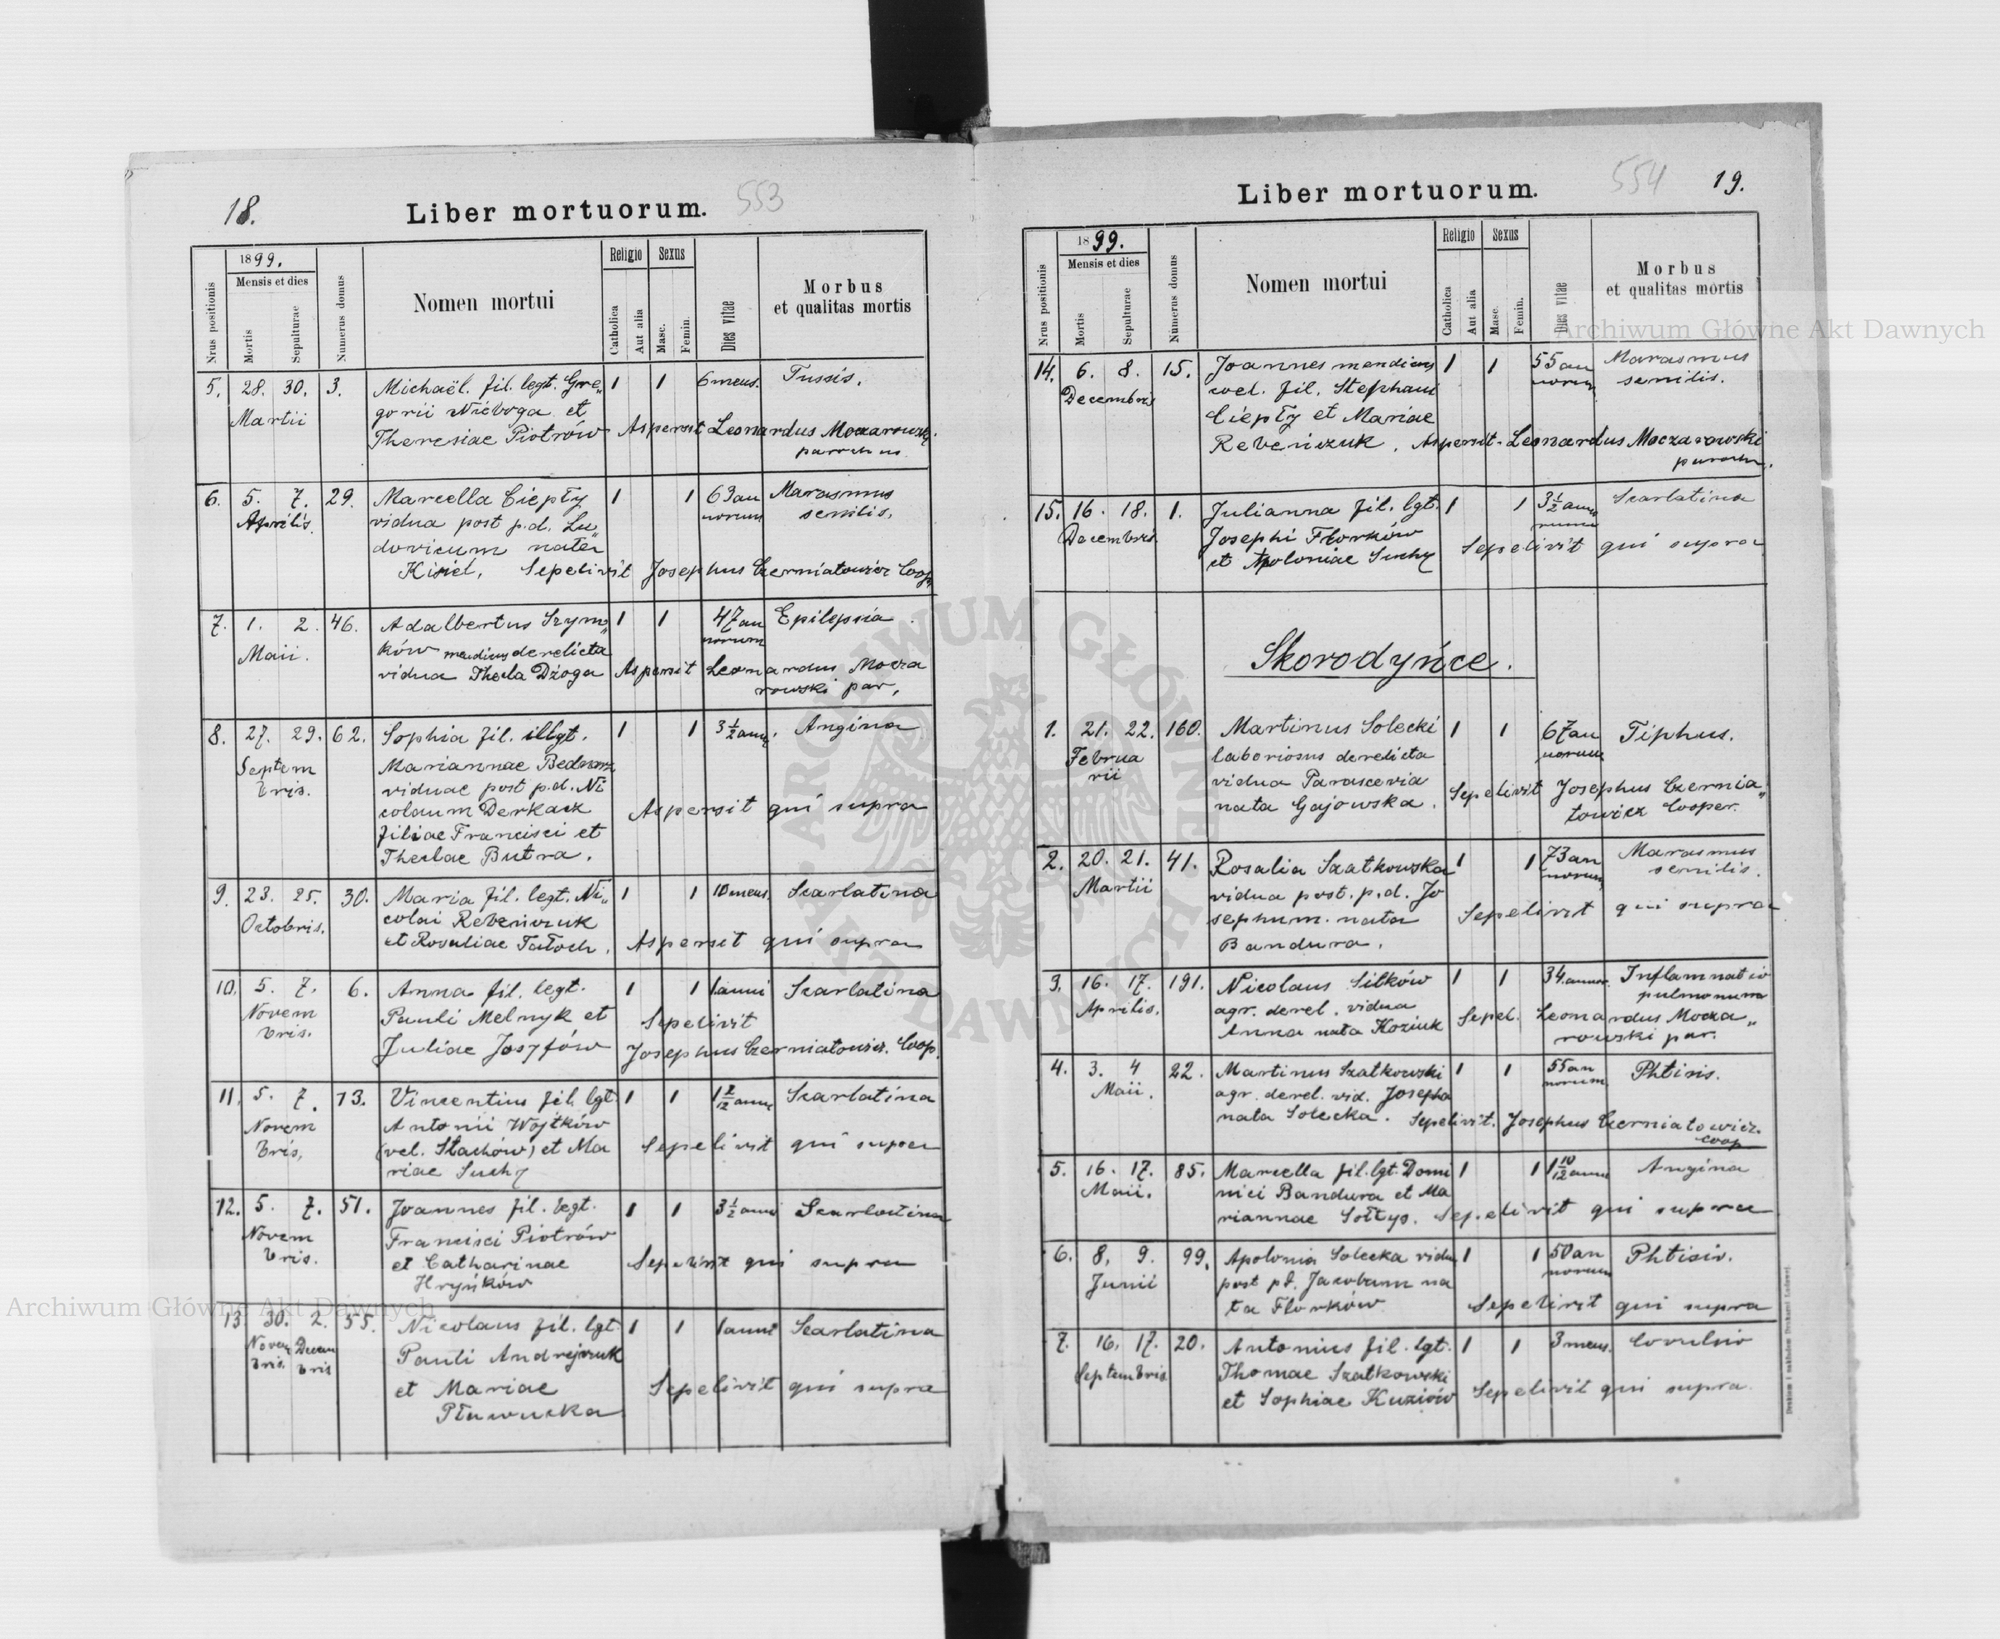 18.
Liber mortuorum.
553
Nrus positionis
1899.
Mensis et dies
Mortis
Sepulturae
Numerus domus
Nomen mortui
Religio
Catholica
Aut alia
Sexus
Masc.
Femin.
Dies vitae
Morbus
et qualitas mortis
5. 28. 30. 3. Michaël. fil. legt. Gre„ 1 1 6 mens. Tussis.
Martii gorii Niéboga et
Theresiae Piotrów Aspersit Leonardus Moczarowski
parochus
6. 5. 7. 29. Marcella Ciepły 1 1 63 an Marasmus
Aprilis. vidua post p.d. Lu„ norum senilis.
dovicum nata
Kisiel, Sepelivit Josephus Czerniatowicz Coop.
7. 1. 2. 46. Adalbertus Szym„ 1 1 47 an Epilepsia
Maii. ków mendicus derelicta norum
vidua Thecla Dżoga Aspersit Leonardus Mocza
rowski par.
8. 27. 29. 62. Sophia fil. illgt. 1 1 3 1/2 anni. Angina
Septem Mariannae Bednarz
bris. viduae post p.d. Ni
colaum Derkacz Aspersit qui supra
filiae Francisci et
Theclae Butra.
9. 23. 25. 30. Maria fil. legt. Ni„ 1 1 10 mens. Scarlatina
Octobris. colai Rebeńczuk
et Rosaliae Tałoch. Aspersit qui supra
10. 5. 7. 6. Anna fil. legt. 1 1 1 anni Scarlatina
Novem Pauli Melnyk et Sepelivit
bris. Juliae Josyfów Josephus Czerniatowicz. Coop.
11. 5. 7. 73. Vincentius fil. lgt 1 1 1 2/12 anni Scarlatina
Novem Antonii Wojtków
bris. (vel. Stachów) et Ma Sepelivit qui supra
riae Suchy
12. 5. 7. 51. Joannes fil. legt. 1 1 3 1/2 anni Scarlatina
Novem Francisci Piotrów
bris. et Catharinae Sepelivit qui supra
Hryńków
13. 30. 2. 55. Nicolaus fil. lgt 1 1 1 anni Scarlatina
Novem Decem Pauli Andrejczuk
bris. bris et Mariae Sepelivit qui supra
554
19.
Liber mortuorum.
Nrus positionis
1899.
Mensis et dies
Mortis
Sepulturae
Numerus domus
Nomen mortui
Religio
Catholica
Aut alia
Sexus
Masc.
Femin.
Dies vitae
Morbus
et qualitas mortis
14. 6. 8. 15. Joannes mendicus 1 1 55 an Marasmus
Decembris coel. fil. Stephani norum senilis.
Ciepły et Mariae
Rebeńczuk. Aspersit. Leonardus Moczarowski
paroch.
15. 16. 18. 1. Julianna fil. lgt. 1 1 3 1/2 anno Scarlatina
Decembris Josephi Florków rum
et Apoloniae Suchy Sepelivit qui supra
Skorodyńce.
1. 21. 22. 160. Martinus Solecki 1 1 67 an Tiphus.
Februa laboriosus derelicta norum
rii vidua Parascevia Sepelivit Josephus Czernia„
nata Gajowska. towicz Cooper.
2. 20. 21. 41. Rosalia Szatkowska 1 1 73 an Marasmus
Martii vidua post. p.d. Jo norum senilis.
sephum. nata Sepelivit qui supra
Bandura.
3. 16. 17. 191. Nicolaus Sitków 1 1 34 annor. Inflammatio
Aprilis. agr. derel. vidua pulmonum
Anna nata Koziuk Sepel. Leonardus Mocza„
rowski par.
4. 3. 4 22. Martinus Szatkowski 1 1 55 an Phtisis.
Maii. agr. derel. vid. Josepha norum
nata Solecka. Sepelivit. Josephus Czerniatowicz.
coop
5. 16. 17. 85. Marcella fil. lgt. Domi 1 1 1 10/12 anni Angina
Maii. nici Bandura et Ma
riannae Sołtys. Sepelivit qui supra
6. 8. 9. 99. Apolonia Solecka vidua 1 1 50 an Phtisis.
Junii post pd. Jacobum na norum
ta Florków Sepelivit qui supra
7. 16. 17. 20. Antonius fil. lgt. 1 1 3 mens. Covulsio
Septembris Thomae Szatkowski
et Sophiae Kuziów Sepelivit qui supra.
Archiwum Główne Akt Dawnych
Archiwum Główne Akt Dawnych
ARCHIWUM GŁÓWNE AKT DAWNYCH